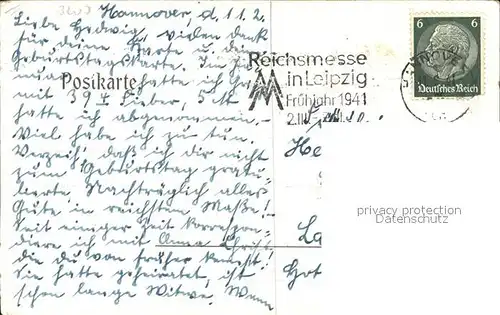 Hannover, d. 11.2.
Liebe Hedwig! Vielen Dank
für deine Karte u. die
Geburtstagskarte. Im
hatte ich
mit 39½ Fieber, 5
hatte ich abgenommen.
Viel habe ich zu tun.
Verzeih' daß ich dir nicht
zum Geburtstag gratu-
lierte. Nachträglich alles
Gute in reichstem Maße!
Seit einiger Zeit korrespon-
diere ich mit Anna
die du von früher kennst!
Sie hatte geheiratet, ist
schon lange Witwe. Wenn
Postkarte
Reichsmesse
in Leipzig
Frühjahr 1941
6 6
Deutsches Reich
He
La
Got
privacy protection
Datenschutz